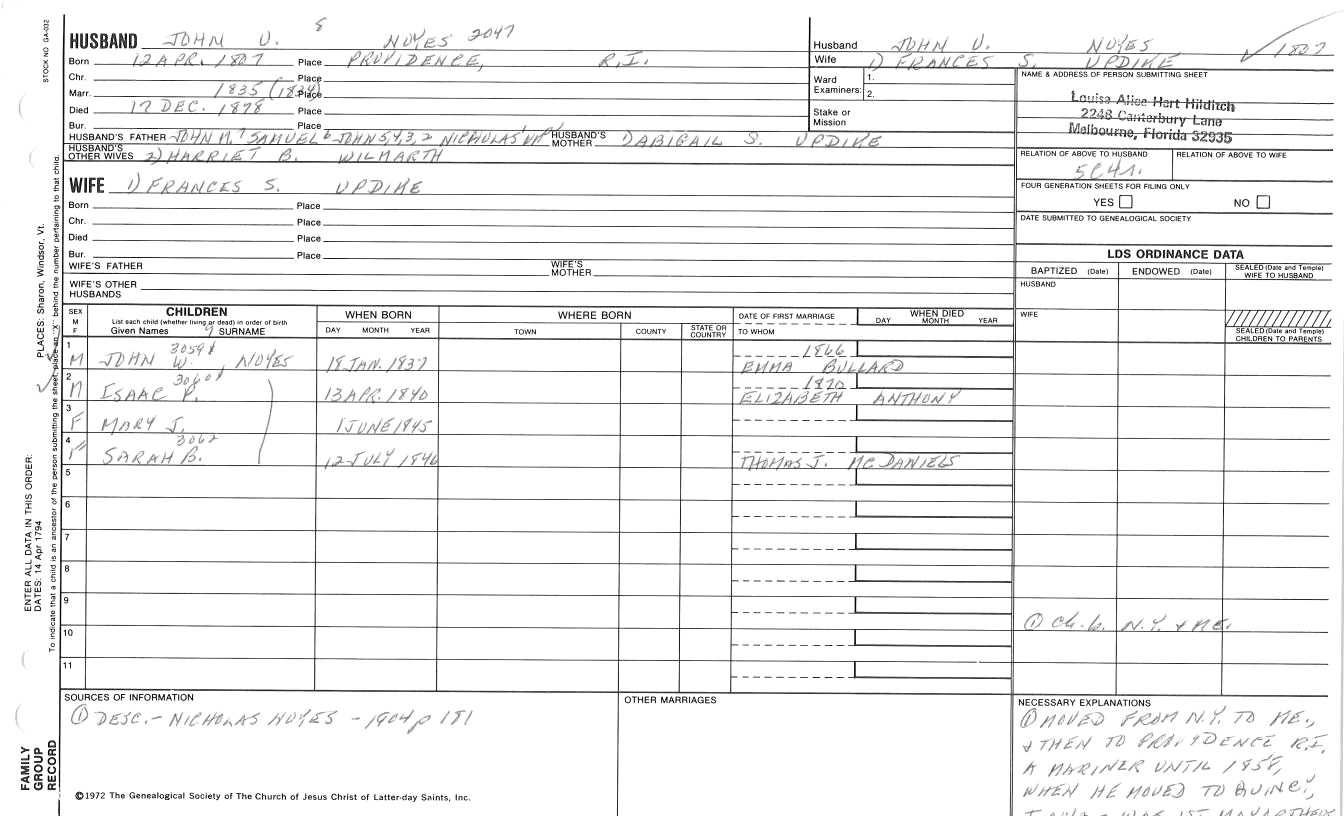 STOCK NO GA-032
HUSBAND JOHN U. 8 NOYES 2047
Born 12 APR. 1807 Place PROVIDENCE, R.I.
Chr. Place
Marr. 1835 (1834) Place
Died 17 DEC. 1878 Place
Bur. Place
HUSBAND'S FATHER JOHN M.7 SAMUEL6 JOHN 5,4,3,2 NICHOLAS1 HUSBAND'S MOTHER 1) ABIGAIL S. UPDIKE
HUSBAND'S OTHER WIVES 2) HARRIET B. WILMARTH
WIFE 1) FRANCES S. UPDIKE
Born Place
Chr. Place
Died Place
Bur. Place
WIFE'S FATHER WIFE'S MOTHER
WIFE'S OTHER HUSBANDS
Husband JOHN U. NOYES 1807
Wife 1) FRANCES S. UPDIKE
Ward Examiners: 1.
2.
Stake or Mission
NAME & ADDRESS OF PERSON SUBMITTING SHEET
Louisa Alice Hart Hilditch
2248 Canterbury Lane
Melbourne, Florida 32935
RELATION OF ABOVE TO HUSBAND RELATION OF ABOVE TO WIFE
5C4r.
FOUR GENERATION SHEETS FOR FILING ONLY
YES NO
DATE SUBMITTED TO GENEALOGICAL SOCIETY
LDS ORDINANCE DATA
BAPTIZED (Date) ENDOWED (Date) SEALED (Date and Temple) WIFE TO HUSBAND
HUSBAND
WIFE
SEALED (Date and Temple) CHILDREN TO PARENTS
SEX M F
CHILDREN
List each child (whether living or dead) in order of birth
Given Names 9 SURNAME
WHEN BORN
DAY MONTH YEAR
WHERE BORN
TOWN COUNTY STATE OR COUNTRY
DATE OF FIRST MARRIAGE
TO WHOM
WHEN DIED
DAY MONTH YEAR
1 M 3059 JOHN W. NOYES 18 JAN. 1837 1866 EMMA BULLARD
2 M 3060 ISAAC P. 13 APR. 1840 1870 ELIZABETH ANTHONY
3 F MARY J. 1 JUNE 1845
4 F 3062 SARAH B. 12 JULY 1846 THOMAS J. MCDANIELS
5
6
7
8
9
10
11
① Ch. b. N.Y. + ME.
SOURCES OF INFORMATION
① DESC.- NICHOLAS NOYES - 1904 p 181
OTHER MARRIAGES
NECESSARY EXPLANATIONS
① MOVED FROM N.Y. TO ME.,
+ THEN TO PROVIDENCE R.I.
A MARINER UNTIL 1858,
WHEN HE MOVED TO QUINCY,
©1972 The Genealogical Society of The Church of Jesus Christ of Latter-day Saints, Inc.
FAMILY GROUP RECORD
ENTER ALL DATA IN THIS ORDER:
DATES: 14 Apr 1794
PLACES: Sharon, Windsor, Vt.
To indicate that a child is an ancestor of the person submitting the sheet, place an "X" behind the number pertaining to that child.